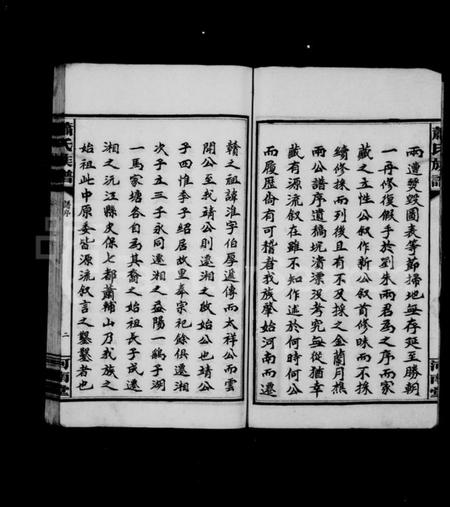 蕭氏族譜
河南堂
兩遭燹燬圖表等節掃地無存延至勝朝
一再修復假手於劉朱雨君為之序而家
藏之主性公叙作新公叙首修昧而不採
續修採而列後且有不及採之金蘭月樵
兩公譜序遺稿坑潰漂没考究無從猶幸
藏有源流叙在雖不知作述於何時何公
而履歷倫有可稽者我族肇始河南而遷
贛之祖諱淮字伯厚遞傳而太祥公而雲
開公至我靖公則遷湘之啟始公也靖公
子四惟季子紹居故里奉宗祀餘俱遷湘
次子立三子永同遷湘之益陽一鶴子洞
一馬家塘各自為其裔之始祖長子成遷
湘之沅江縣史保七都蕭婦山乃我族之
始祖此中原委皆源流叙言之鑿鑿者也
蕭氏族譜
譜序
二
河南堂